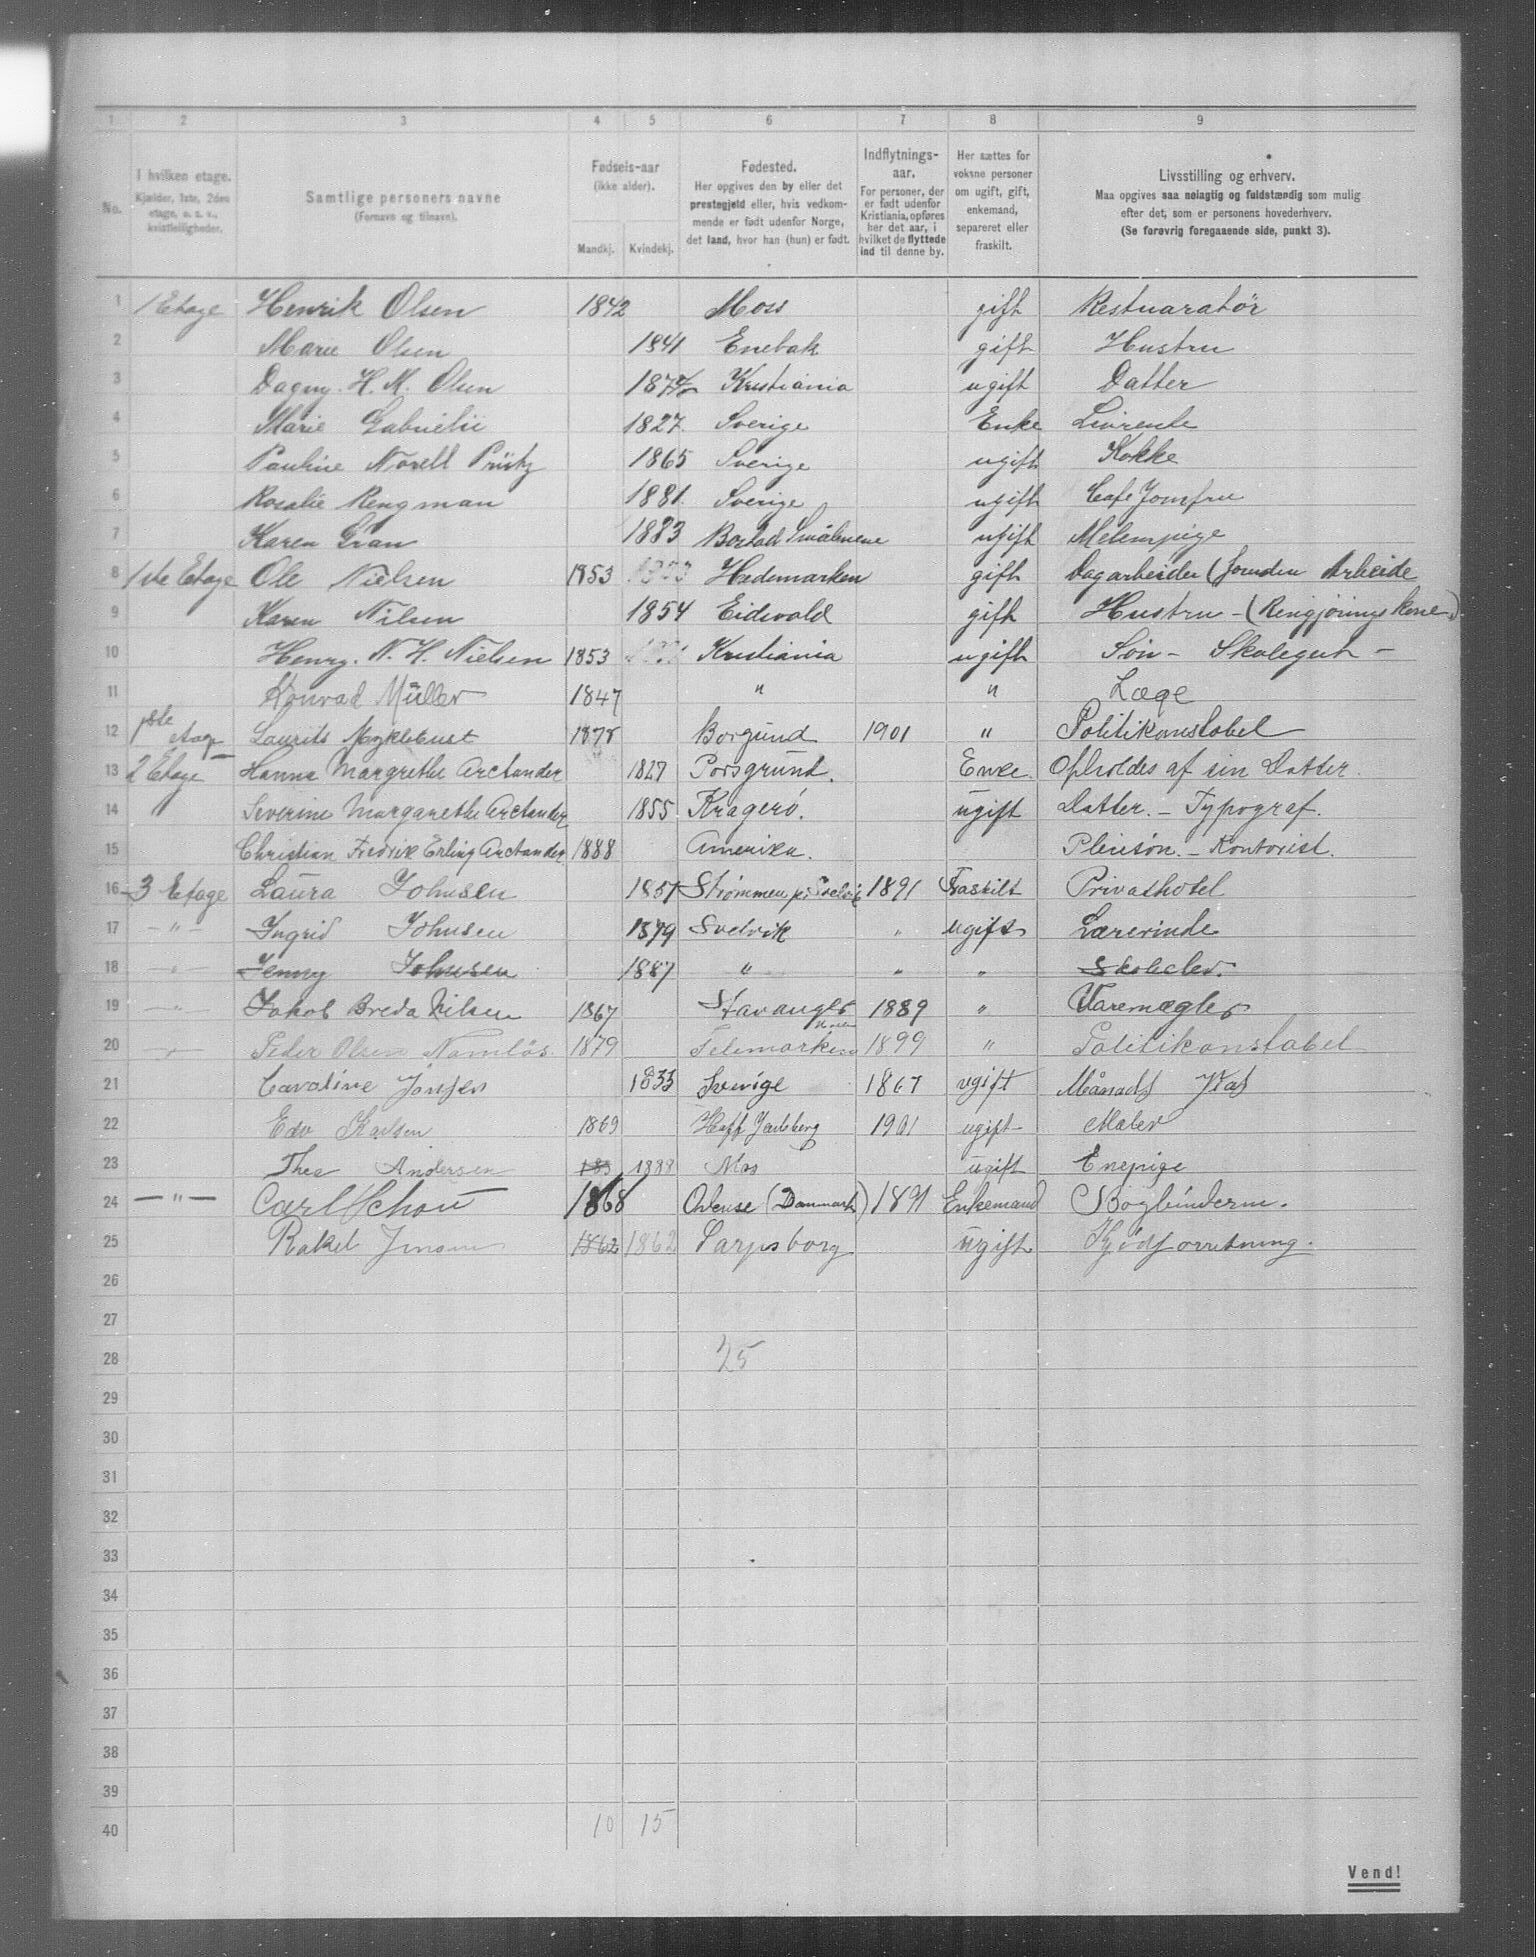 1 2 3 4 5 6 7 8 9
No.
I hvilken etage.
Kjælder, 1ste, 2den etage, o. s. v., kvistleiligheder.
Samtlige personers navne
(Fornavn og tilnavn).
Fødsels-aar
(ikke alder).
Mandkj. Kvindekj.
Fødested.
Her opgives den by eller det
prestegjeld eller, hvis vedkom-
mende er født udenfor Norge,
det land, hvor han (hun) er født.
Indflytnings-
aar.
For personer, der
er født udenfor
Kristiania, opføres
her det aar, i
hvilket de flyttede
ind til denne by.
Her sættes for
voksne personer
om ugift, gift,
enkemand,
separeret eller
fraskilt.
Livsstilling og erhverv.
Maa opgives saa nøiagtig og fuldstændig som mulig
efter det, som er personens hovederhverv.
(Se forøvrig foregaaende side, punkt 3).
1 1 Etage Henrik Olsen 1842 Moss gift Restuaratør
2 Marie Olsen 1841 Enebak gift Hustru
3 Dagny. H. M. Olsen Kristiania ugift Datter
4 Marie 1827. Sverige Enke Livrende
5 Pauline Norell 1865 Sverige ugift Kokke
6 Rosalie Rengman 1881. Sverige ugift Cafe Jomfru
7 Karen Gran 1883 Smålenene ugift
8 1ste Etage Ole Nielsen 1853 Hedemarken gift Dagarbeider ( Arbeide
9 Karen Nilsen 1854 Eidsvold gift Hustru - (Rengjøringskone)
10 Henry. N. H. Nielsen 1853 Kristiania ugift Søn - Skolegut -
11 Konrad Müller 1847 " " Læge
12 1ste etage Laurits Myklebust 1878 Borgund 1901 " Politikonstabel
13 2 Etage Hanna Margrethe Arctander 1827 Porsgrund. Enke. Opholdes af sin Datter.
14 Severine Margarethe Arctander 1855 Kragerö. ugift Datter. - Typograf.
15 Christian Fredrik Erling Arctander 1888 Amerika. Pleiesön. - Kontorist.
16 3 Etage Laura Johnsen 1857 Strømmen pr Svelvik 1891 Fraskilt Privathotel
17 - " - Ingrid Johnsen 1879 Svelvik " ugift Lærerinde
18 - " - Jenny Johnsen 1887 " " " Skoleelev.
19 - " Jakob Breda Nilsen 1867 Stavanger 1889 " Varemægler
20 - " Peder Olsen Namløs 1879 Telemarken 1899 " Politikonstabel
21 Caroline 1833 Sverige 1867 ugift
22 Edv Karlsen 1869 Hoff Jarlsberg 1901 ugift Maler
23 Thea Andersen 183 1888 Mos ugift Enepige
24 - " - Carl Schou 1868 Odense (Danmark) 1891 Enkemand Bogbinderm.
25 Rakel Jensen 1862 1862 Sarpsborg ugift Kjødforretning.
26
27
28 25
29
30
31
32
33
34
35
36
37
38
39
40 10 15
Vend!